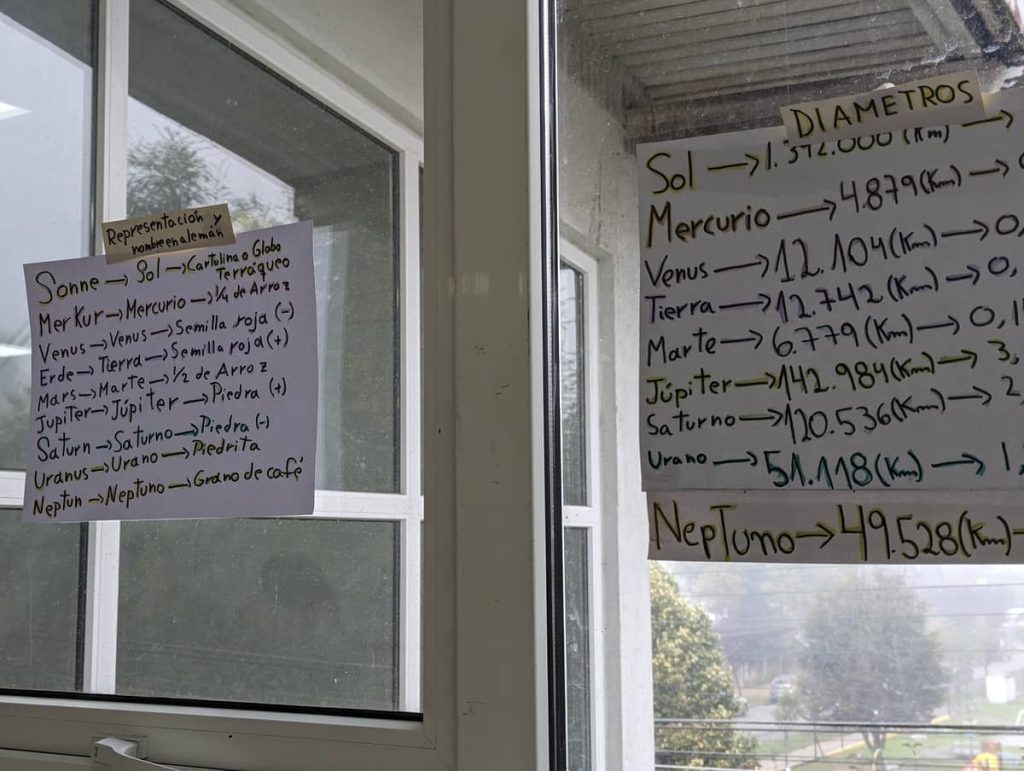 Representación y
nombre en alemán
Sonne → Sol → Cartolina o Globo
Terráqueo
Merkur → Mercurio → 1/4 de Arroz
Venus → Venus → Semilla roja (-)
Erde → Tierra → Semilla roja (+)
Mars → Marte → 1/2 de Arroz
Jupiter → Júpiter → Piedra (+)
Saturn → Saturno → Piedra (-)
Uranus → Urano → Piedrita
Neptun → Neptuno → Grano de café
DIAMETROS
Sol → (Km) →
Mercurio → 4.879 (Km) →
Venus → 12.104 (Km) → 0,
Tierra → 12.742 (Km) → 0,
Marte → 6.779 (Km) → 0,1
Júpiter → 142.984 (Km) → 3,
Saturno → 120.536 (Km) → 2,
Urano → 51.118 (Km) → 1,
Neptuno → 49.528 (Km)